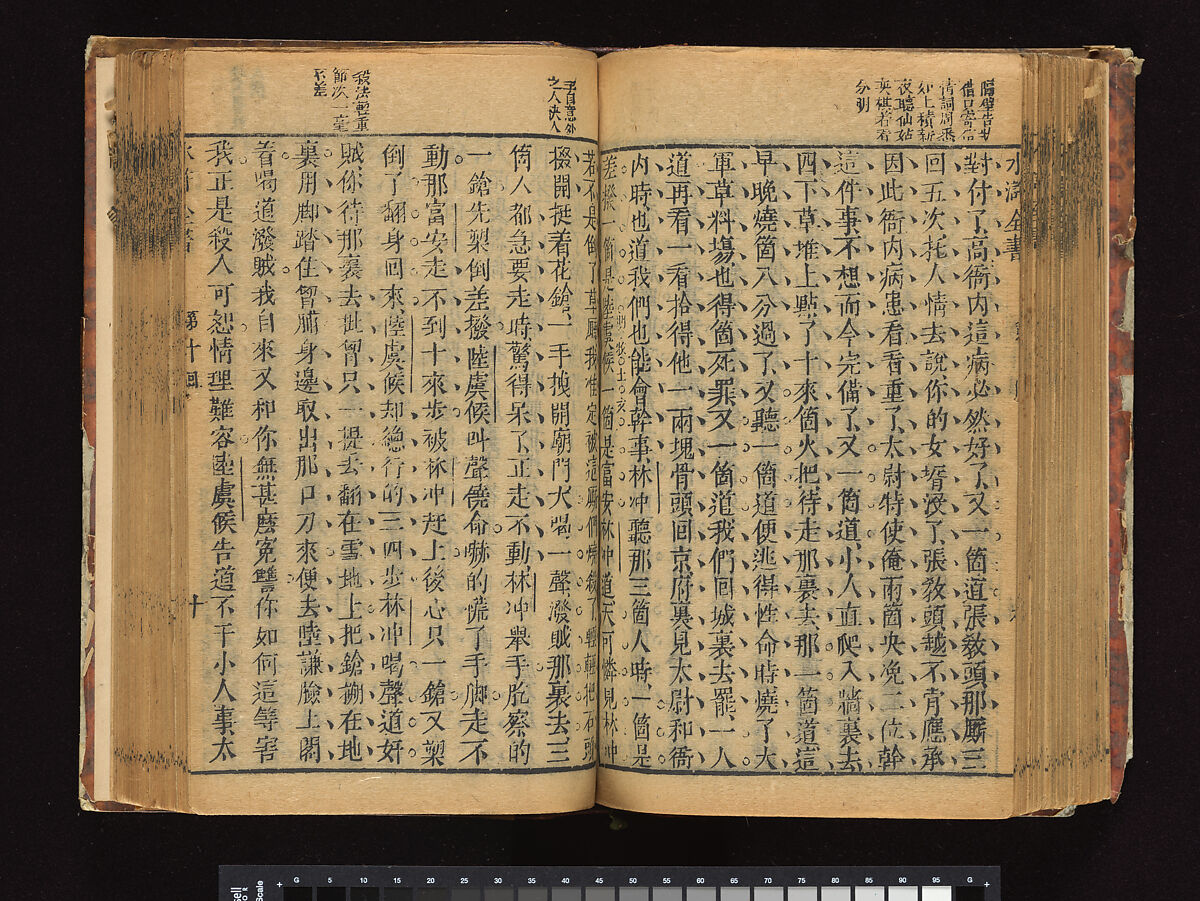 隔壁告人
借口寄信
情詞周悉
如上積薪
夜聽仙姑
奕棋着着
分明
水滸全書
對付了高衙內這病必然好了又一箇道張敎頭那厮三
回五次托人情去說你的女壻沒了張敎頭越不肯應承
因此衙內病患看看重了太尉特使俺兩箇央浼二位幹
這件事不想而今完備了又一箇道小人直爬入牆裏去
四下草堆上點了十來箇火把待走那裏去那一箇道這
早晚燒箇八分過了又聽一箇道便逃得性命時燒了大
軍草料塲也得箇死罪又一箇道我們回城裏去罷一人
道再看一看拾得他一兩塊骨頭回京府裏見太尉和衙
內時也道我們也能會幹事林冲聽那三箇人時一箇是
差撥一箇是陸虞候一箇是富安林冲道天可憐見林冲
字自意外
之人決人
殺法輕重
節次一毫
不差
若不是倒了草廳我准定被這厮們燒死了輕輕把石頭
掇開挺着花鎗一手拽開廟門大喝一聲潑賊那裏去三
箇人都急要走時驚得呆了正走不動林冲舉手肐察的
一鎗先槊倒差撥陸虞候叫聲饒命嚇的慌了手脚走不
動那富安走不到十來步被林冲赶上後心只一鎗又槊
倒了翻身回來陸虞候却纔行的三四步林冲喝聲道奸
賊你待那裏去批胷只一提丢翻在雪地上把鎗搠在地
裏用脚踏住胷脯身邊取出那口刀來便去陸謙臉上閣
着喝道潑賊我自來又和你無甚麽寃讐你如何這等害
我正是殺人可恕情理難容陸虞候告道不干小人事太
第十回
十